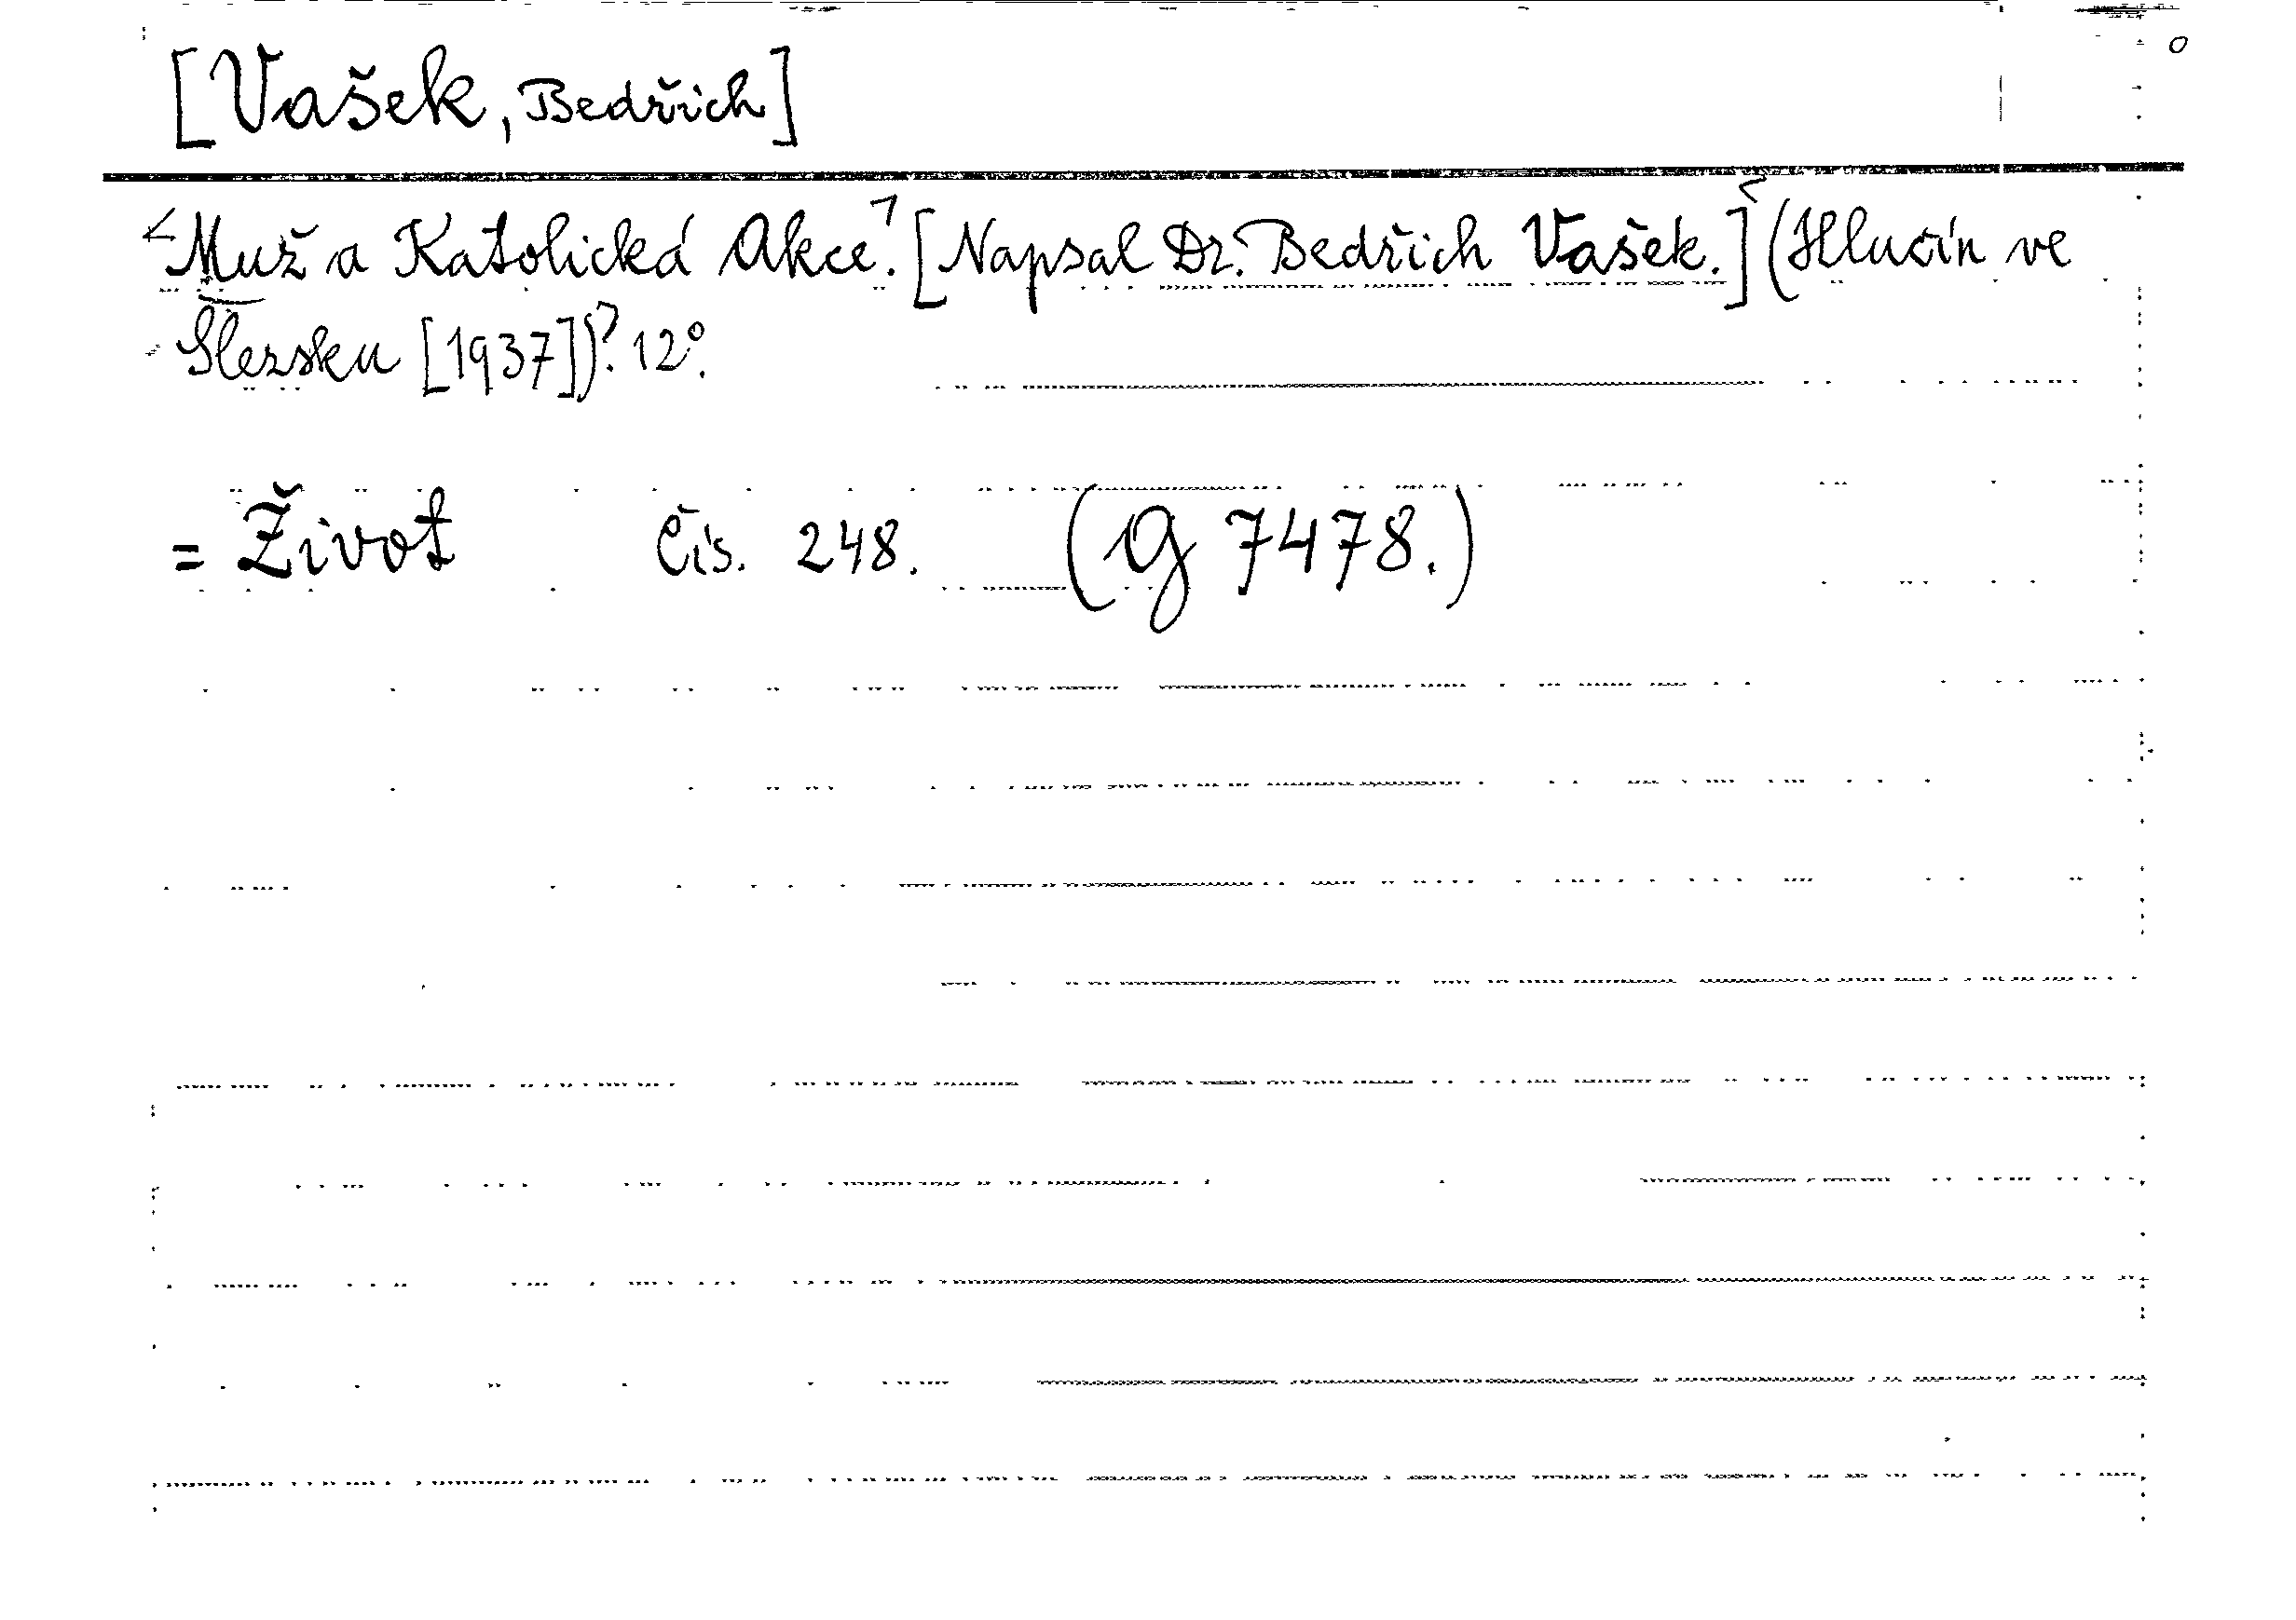 [Vašek, Bedřich]
Muž a Katolická Akce. [Napsal Dr. Bedřich Vašek.] (Hlučín ve
Slezsku [1937]) 12°.
= Život čís. 248. (G 7478.)